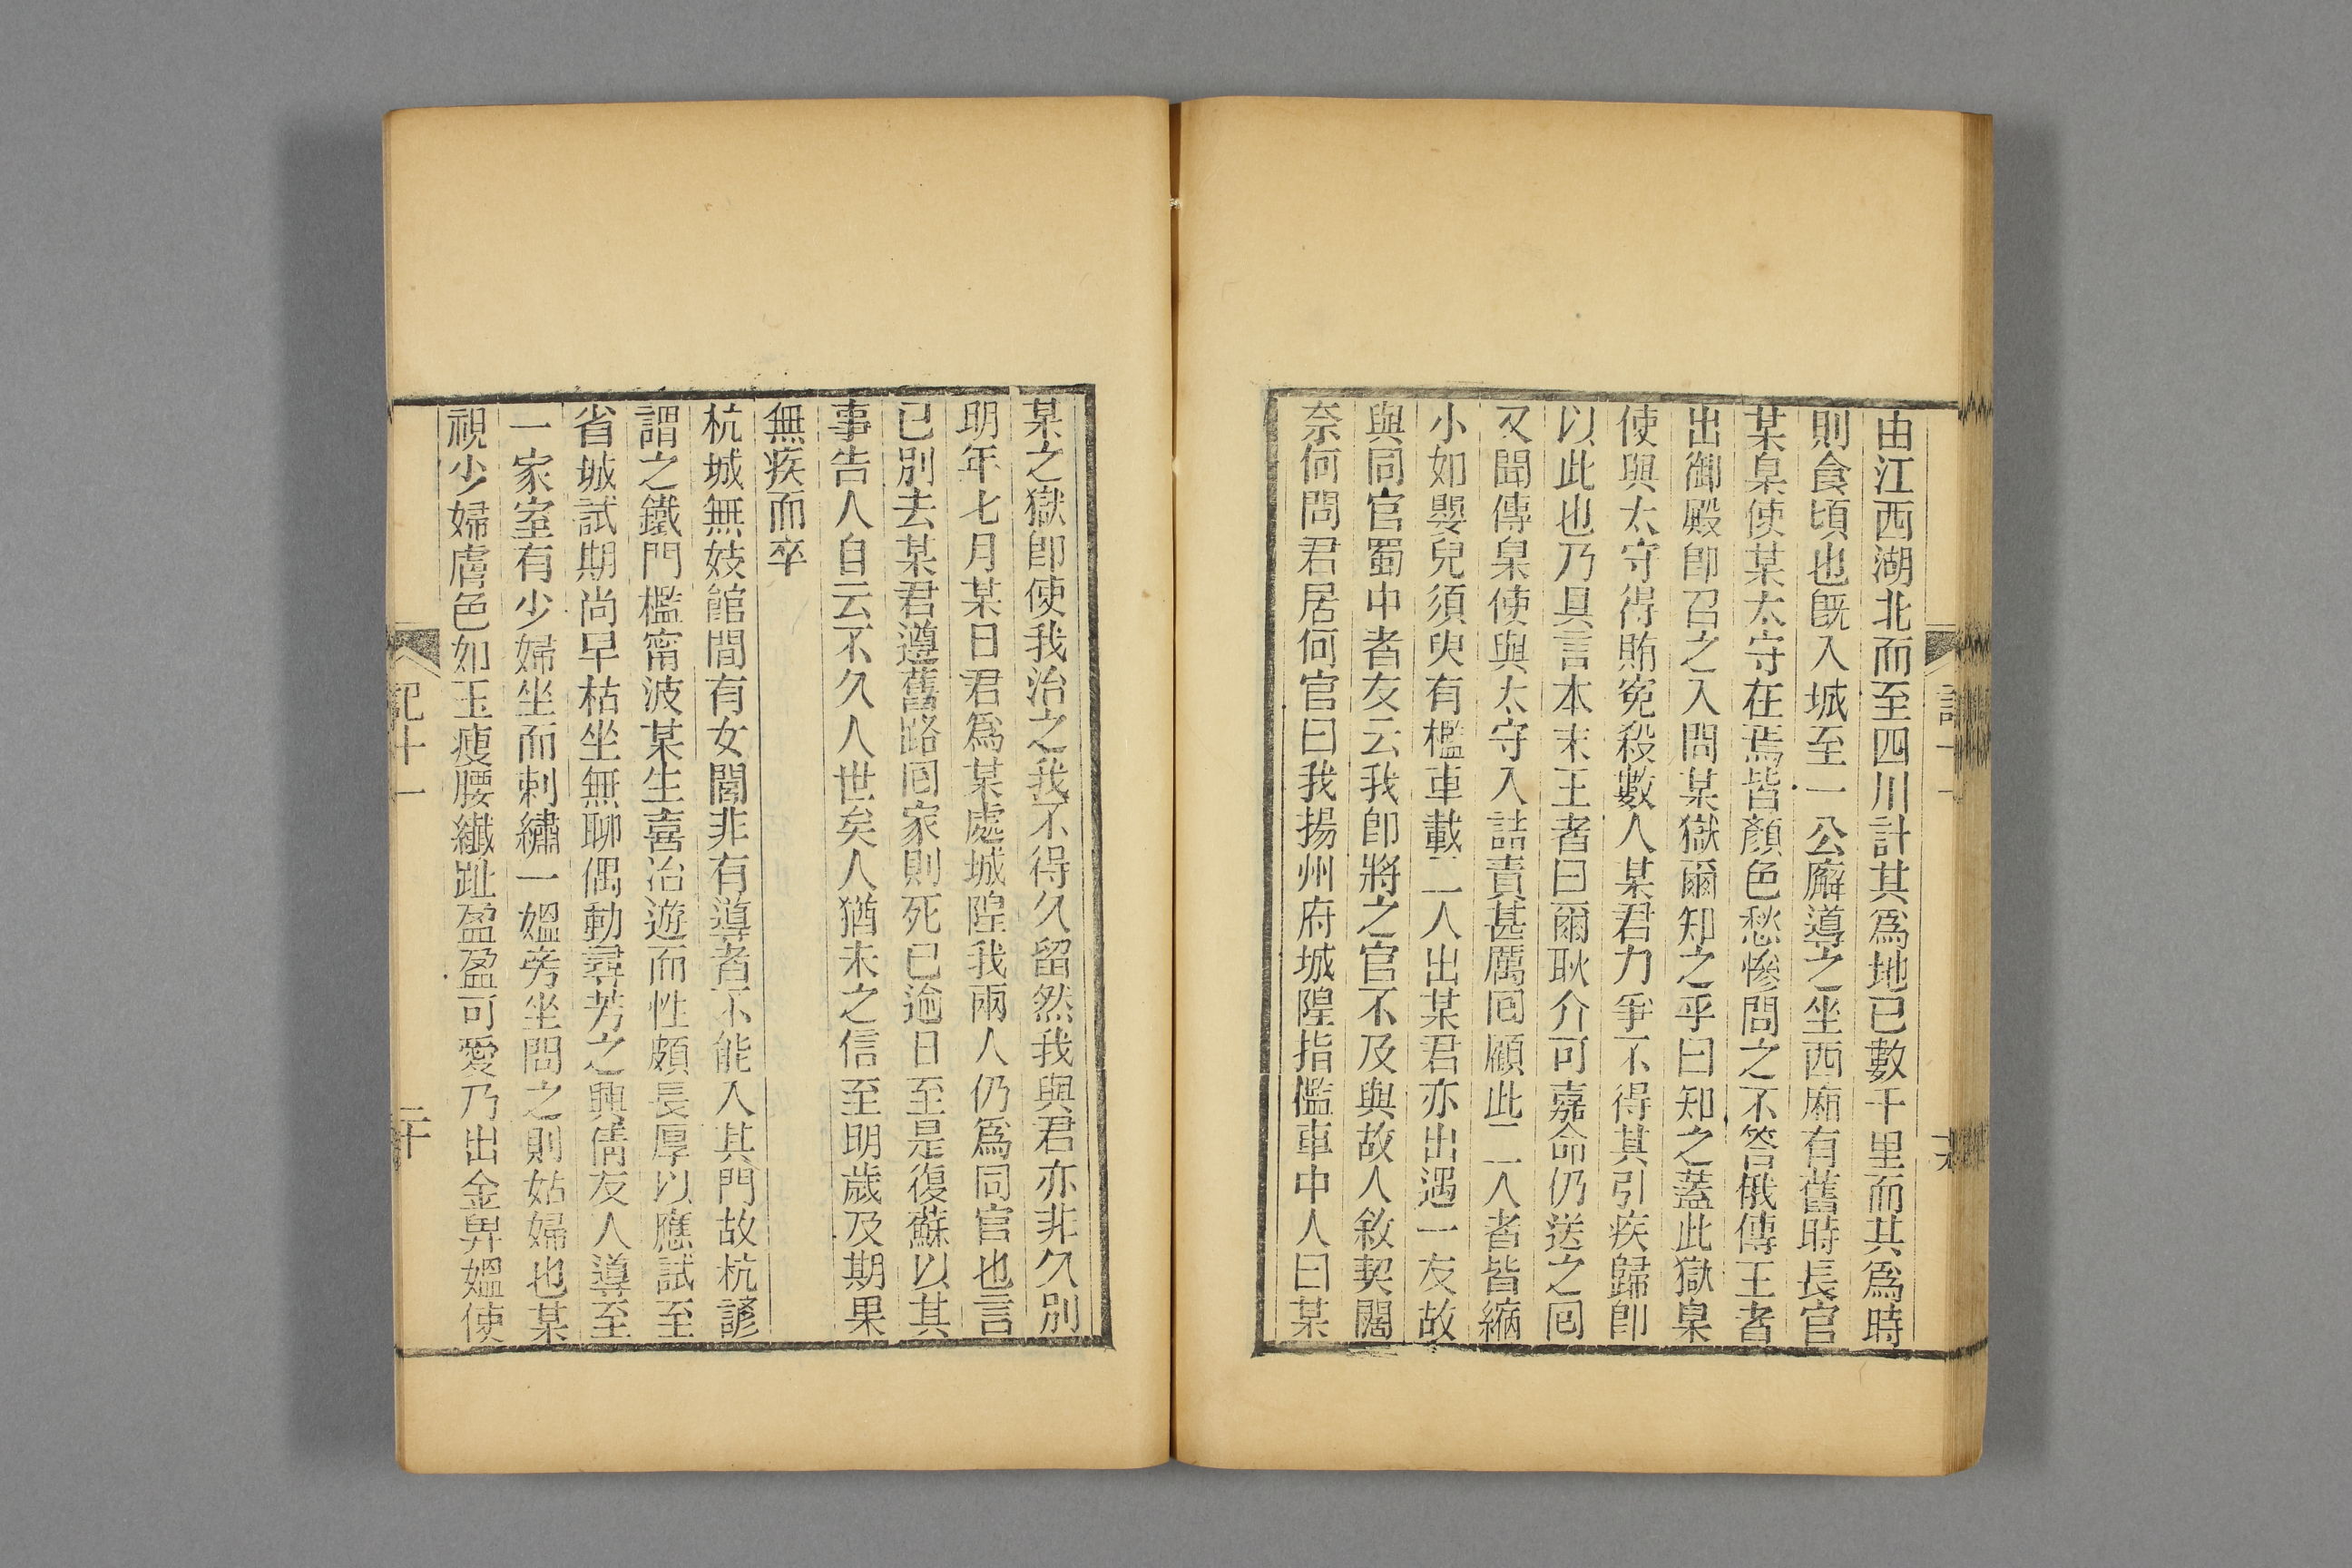 由江西湖北而至四川計其爲地已數千里而其爲時
則食頃也既入城至一公廨導之坐西廂有舊時長官
某臬使某太守在焉皆顏色愁慘問之不答俄傳王者
出御殿卽召之入問某獄爾知之乎曰知之蓋此獄臬
使與太守得賄寃殺數人某君力爭不得其引疾歸卽
以此也乃具言本末王者曰爾耿介可嘉命仍送之囘
又聞傳臬使與太守入詰責甚厲囘顧此二人者皆縮
小如嬰兒須臾有檻車載二人出某君亦出遇一友故
與同官蜀中者友云我卽將之官不及與故人敘契闊
奈何問君居何官曰我揚州府城隍指檻車中人曰某
某之獄卽使我治之我不得久留然我與君亦非久別
明年七月某日君爲某處城隍我兩人仍爲同官也言
已別去某君遵舊路囘家則死已逾日至是復蘇以其
事告人自云不久人世矣人猶未之信至明歲及期果
無疾而卒
杭城無妓館間有女閭非有導者不能入其門故杭諺
謂之鐵門檻甯波某生喜冶遊而性頗長厚以應試至
省城試期尚早枯坐無聊偶動尋芳之興倩友人導至
一家室有少婦坐而刺繡一媼旁坐問之則姑婦也某
視少婦膚色如玉瘦腰纖趾盈盈可愛乃出金畀媼使
記十一
二十